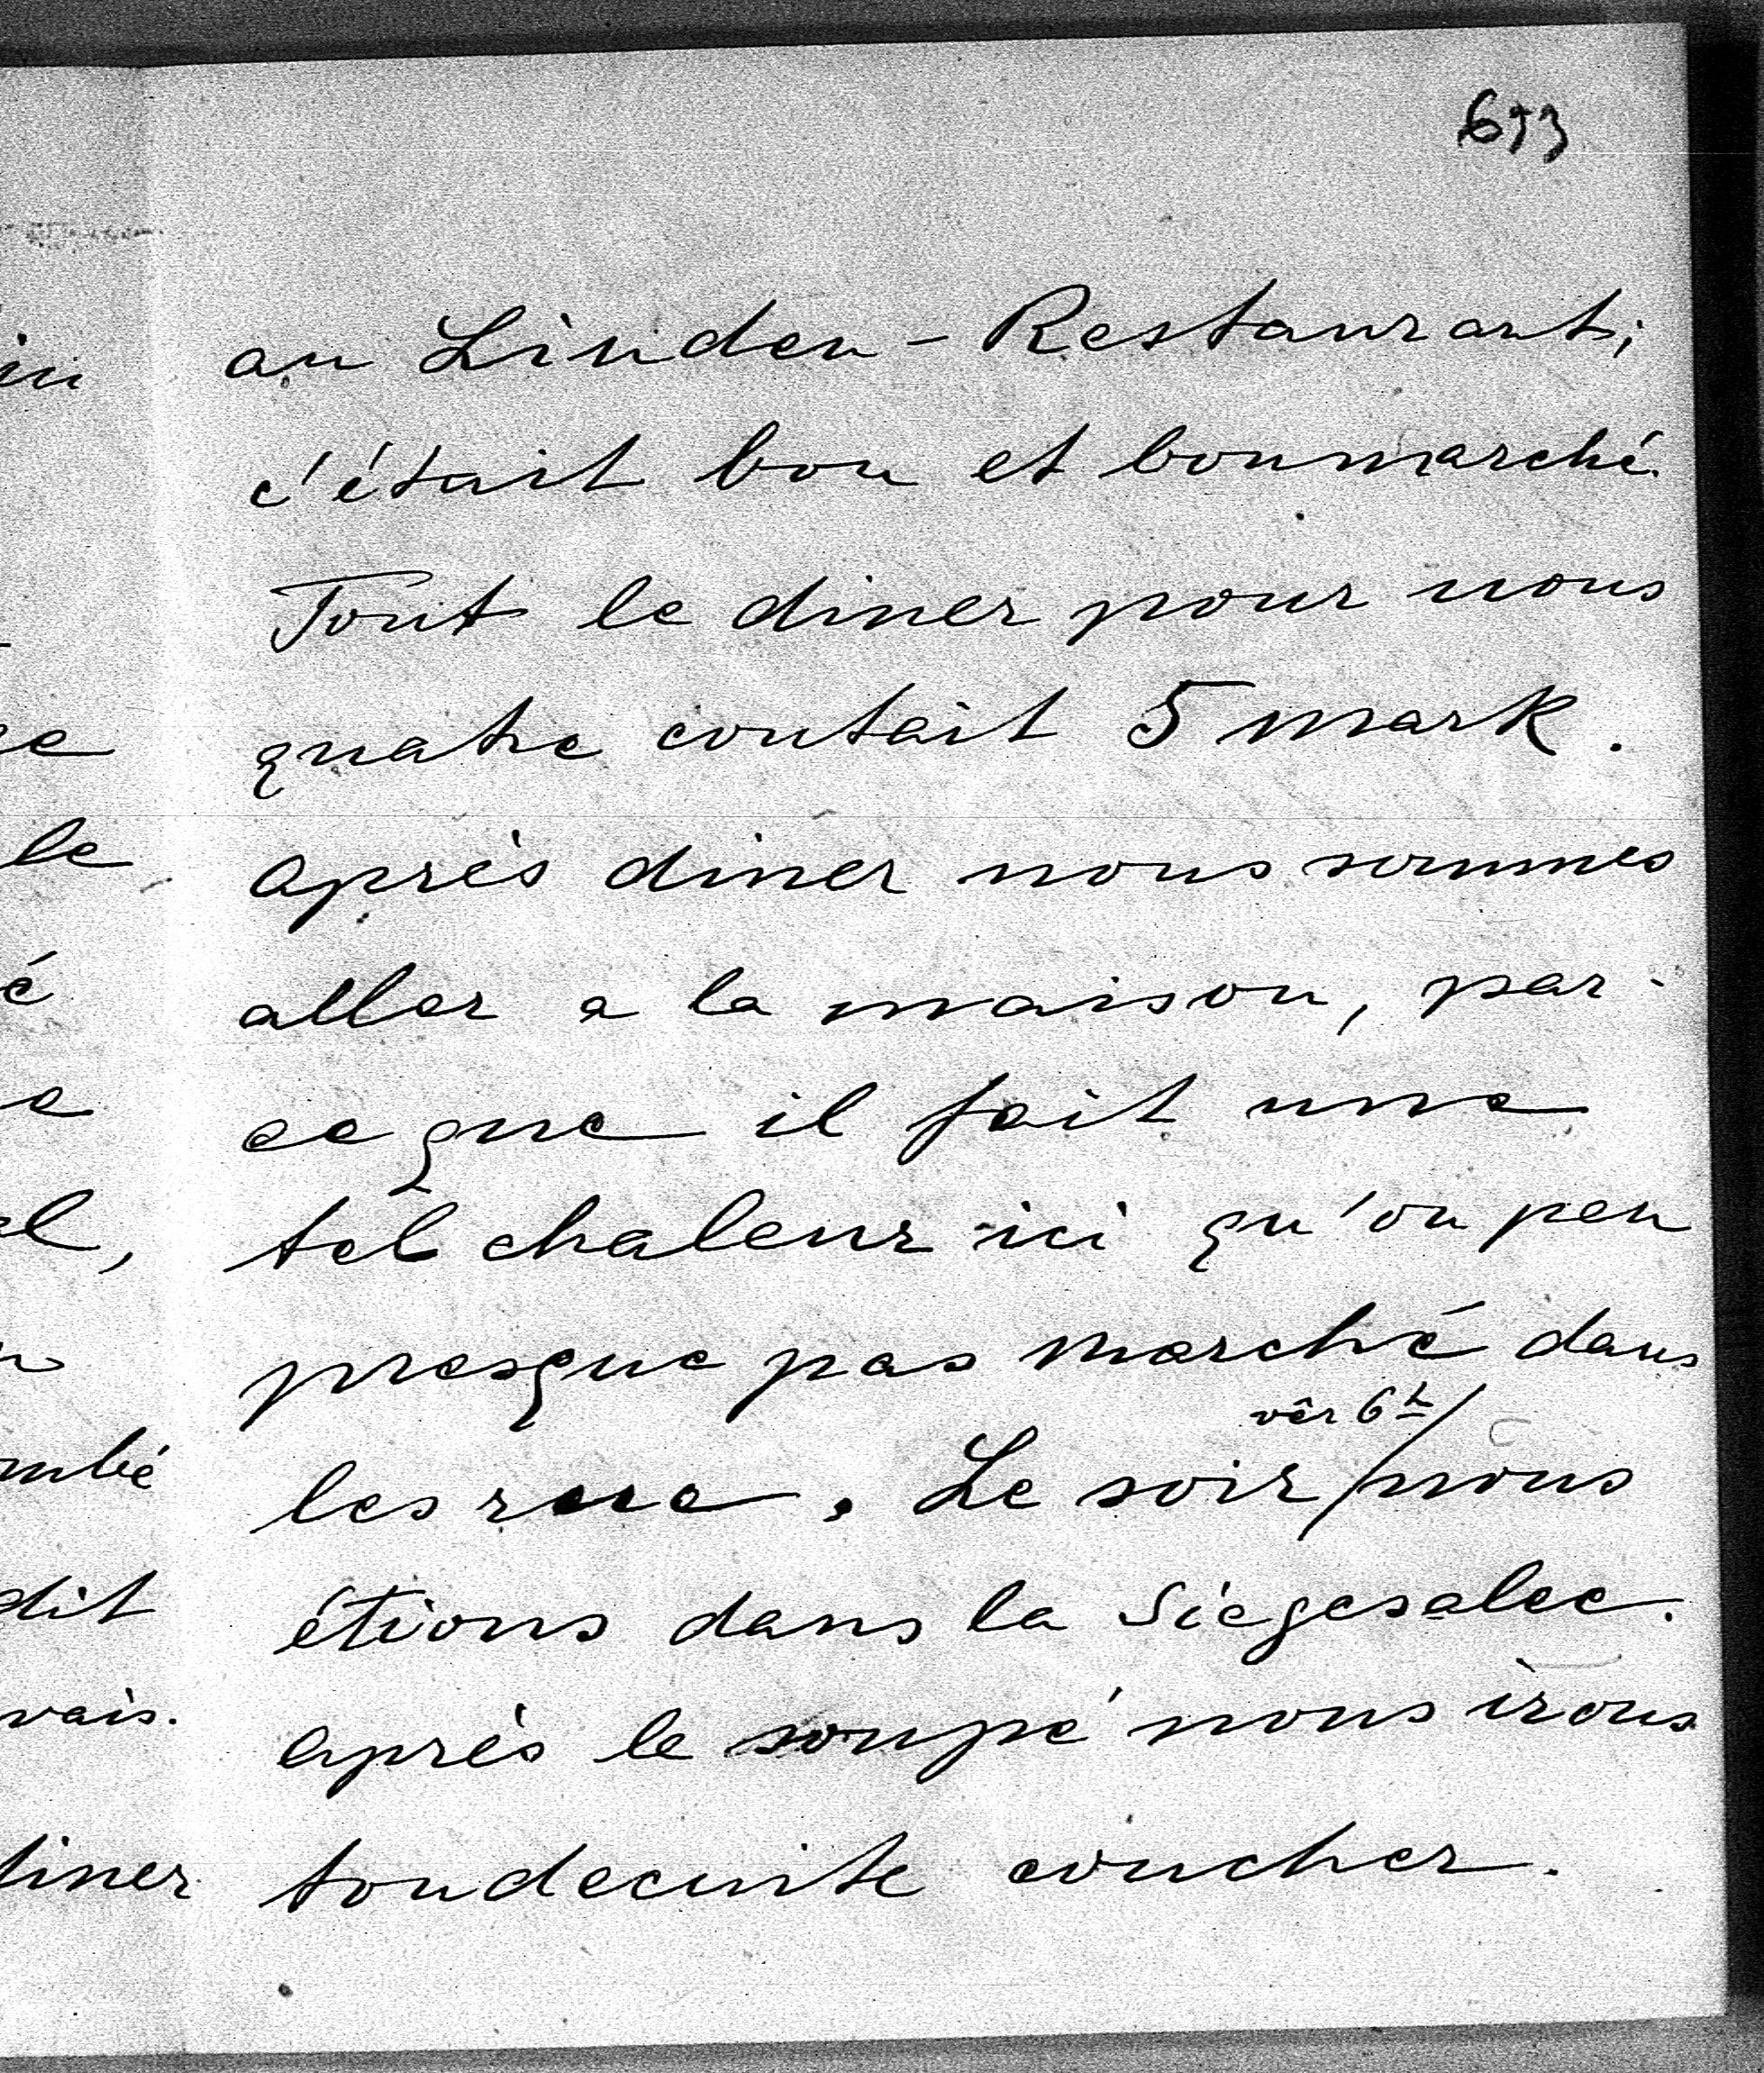 au Linden-Restaurant;
c'était bon et bonmarché.
Tout le diner pour nous
quatre coutait 5 mark.
après diner nous sommes
aller a la maison, par-
ce que il fait une
tel chaleur ici qu'on peu
presque pas marché dans
vèr 6h/
les rue. Le soir/nous
étions dans la Siegesalee.
après le soupé nous irons
toudecuite coucher.
le
é
l,
mbé
dit
vais.
diner